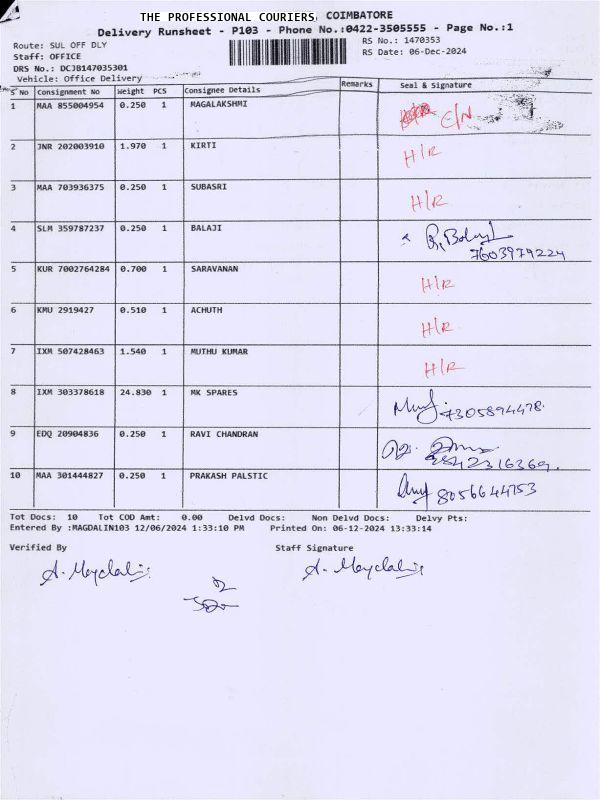 THE PROFESSIONAL COURIERS, COIMBATORE
Delivery Runsheet - P103 - Phone No.:0422-3505555 - Page No.:1
Route: SUL OFF DLY
RS No.: 1470353
Staff: OFFICE
RS Date: 06-Dec-2024
DRS No.: DCJB147035301
Vehicle: Office Delivery
S No Consignment No Weight PCS Consignee Details Remarks Seal & Signature
1 MAA 855004954 0.250 1 MAGALAKSHMI C/N
2 JNR 202003910 1.970 1 KIRTI H/R
3 MAA 703936375 0.250 1 SUBASRI H/R
4 SLM 359787237 0.250 1 BALAJI
7603979224
5 KUR 7002764284 0.700 1 SARAVANAN H/R
6 KMU 2919427 0.510 1 ACHUTH H/R
7 IXM 507428463 1.540 1 MUTHU KUMAR H/R
8 IXM 303378618 24.830 1 MK SPARES 7305894478.
9 EDQ 20904836 0.250 1 RAVI CHANDRAN
10 MAA 301444827 0.250 1 PRAKASH PALSTIC 8056644753
Tot Docs: 10 Tot COD Amt: 0.00 Delvd Docs: Non Delvd Docs: Delvy Pts:
Entered By :MAGDALIN103 12/06/2024 1:33:10 PM Printed On: 06-12-2024 13:33:14
Verified By Staff Signature